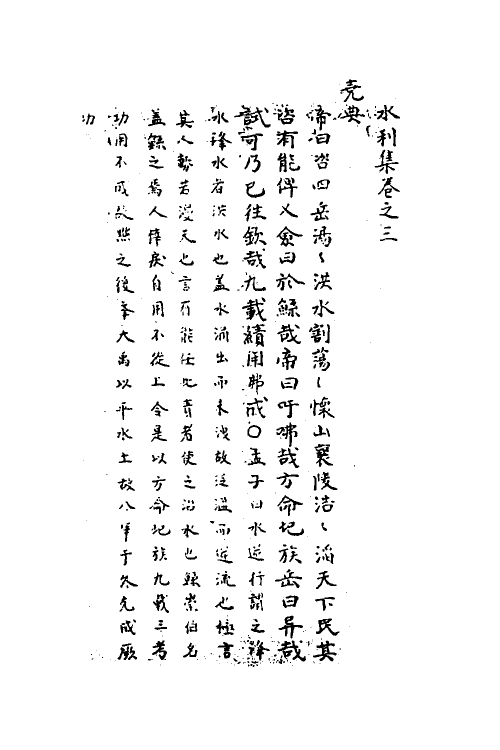 水利集卷之三
堯典
帝曰咨四岳湯〻洪水割蕩〻懷山襄陵浩〻滔天下民其
咨有能俾乂僉曰於鯀哉帝曰吁咈哉方命圮族岳曰异哉
試可乃已往欽哉九載績用弗成〇孟子曰水逆行謂之洚
水洚水者洪水也蓋水涌出而未洩故泛溢而逆流也極言
其大勢若漫天也言有能任此責者使之治水也鯀崇伯名
蓋鯀之為人悻戾自用不從上令是以方命圮族九載三考
功用不成故黜之後舉大禹以平水土故八年于外克成厥
功